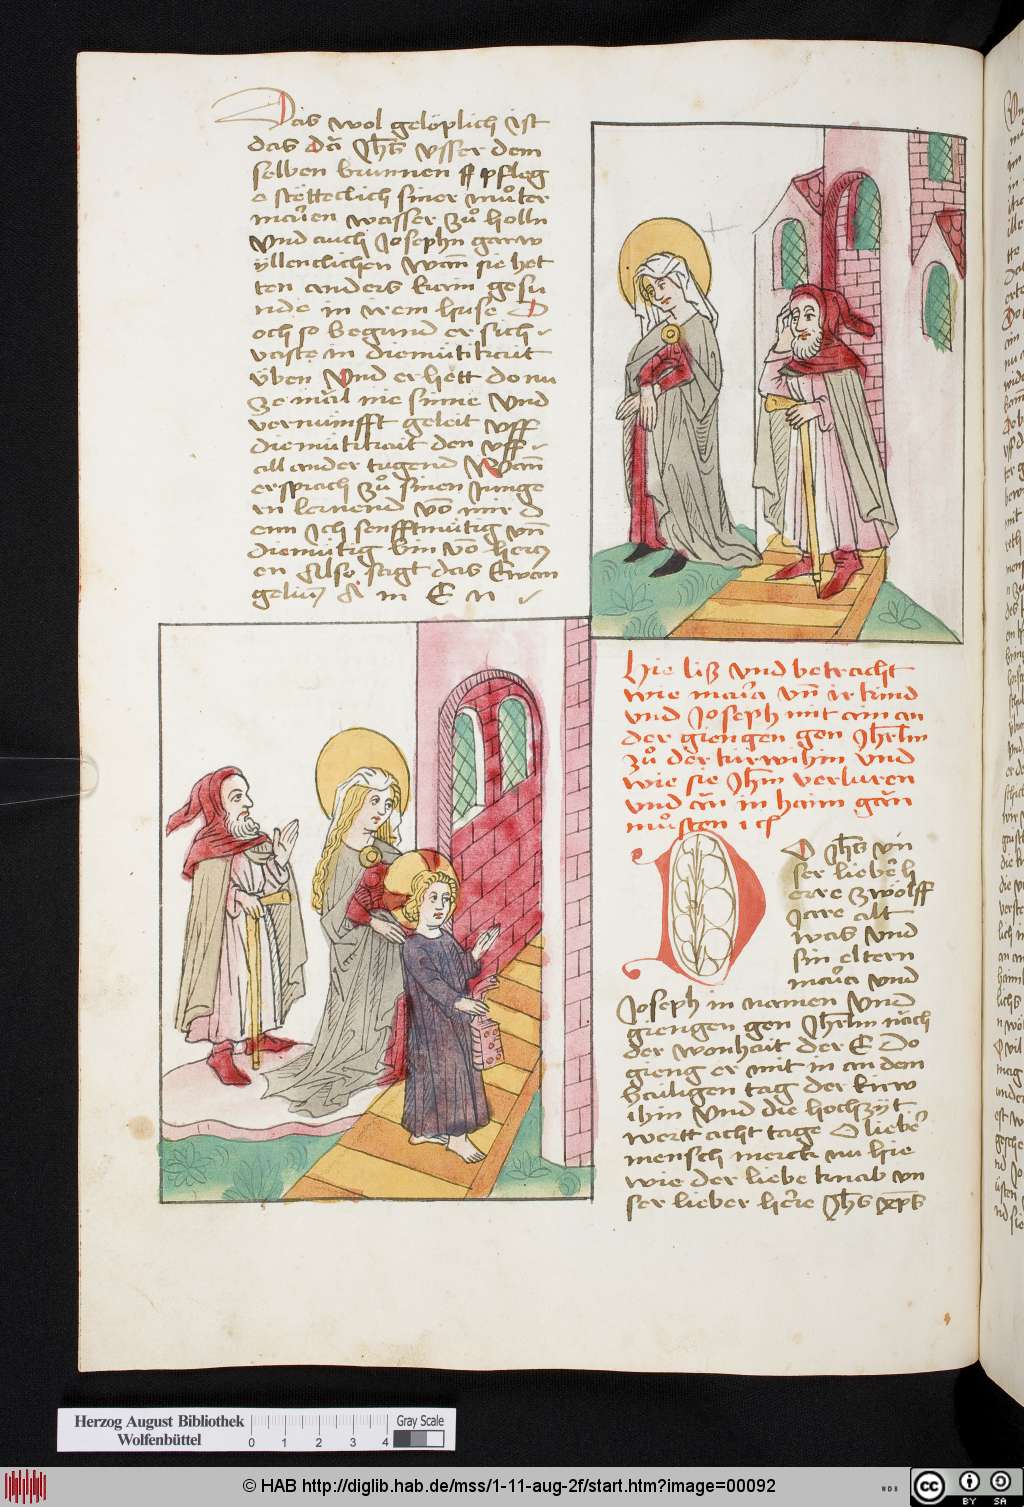 Das wol gelöplich ist
das dā Jhs̄ vsser dem
selben brunnen pfleg
e stetteclich siner mūter
marien wasser zů holln
vnd auch Josephn gar w
yllenclichen wan̄ sie het
ten anders kain gesu
nde in irem huse D
och so begund er sich
vaste in diemüttikait
üben Vnd er hett do nu
ze mal̄ nie sinne Vnd
vernunfft geleit vff
diemüttikait den vff
all ander tugend Wan̄
er sprach zů sinen Junge
rn lernend vō mir d
enn Jch senfftmütig vn̄
diemütig bin vō hercz
en Also sagt das Ewan
gelium̄ A m E n
Hie liß vnd betracht
wie maria vn̄ ir kind
vnd Joseph mit ain an
der giengen gen Jhrl̄m
zů der kirwihin vnd
wie sie Jhm̄ verluren
vnd ān in haim gān
můsten
DO Jhs̄ vn
ser lieber h
erre zwölff
Jare alt
was vnd
sin eltern
maria vnd
Joseph in namen Vnd
giengen gen Jhrl̄m nāch
der wonhait der E Do
gieng er mit in an dem
hailigen tag der kirw
ihin Vnd die hochzyt
wertt acht tage O liebe
mensch merck nu hie
wie der liebe knab vn
ser lieber herre Jhs̄ xp̄s
Herzog August Bibliothek
Wolfenbüttel
0 1 2 3 4
Gray Scale
© HAB http://diglib.hab.de/mss/1-11-aug-2f/start.htm?image=00092
cc BY SA